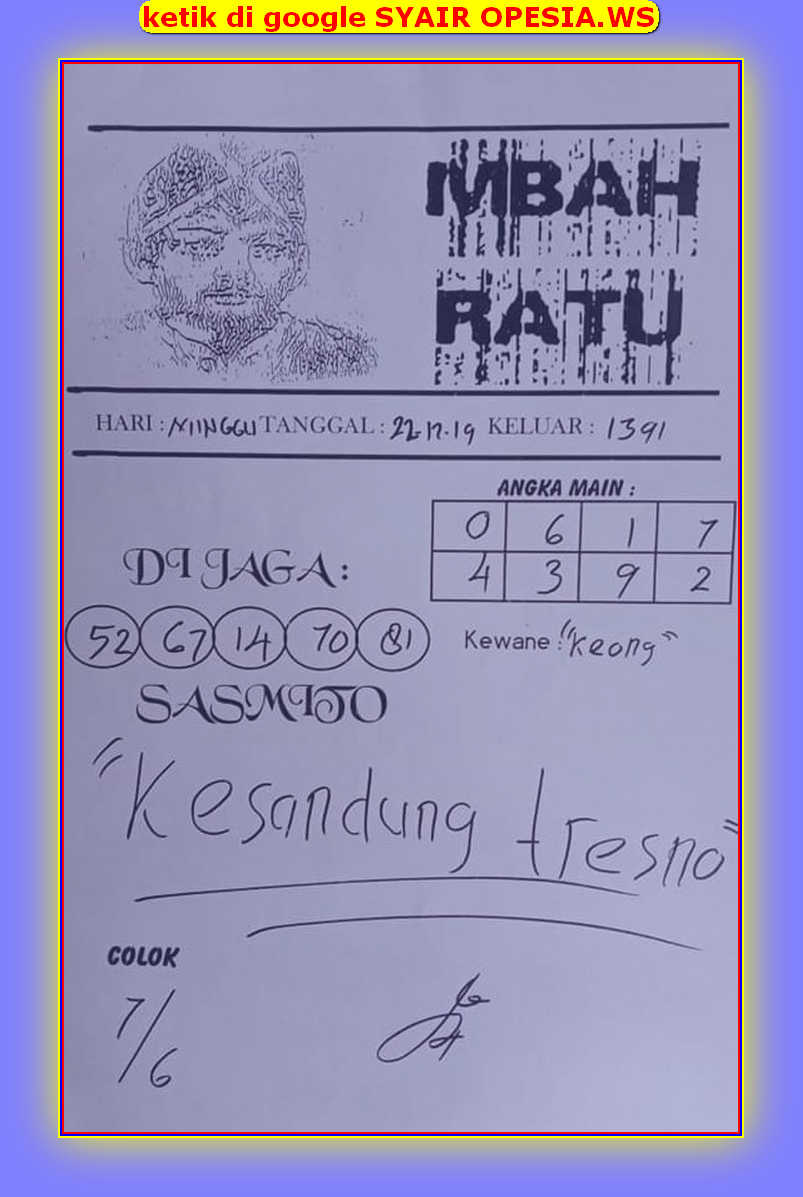 ketik di google SYAIR OPESIA.WS
MBAH
RATU
HARI : MINGGU TANGGAL : 22-12-19 KELUAR : 1391
ANGKA MAIN :
0 6 1 7
4 3 9 2
DI JAGA :
52 67 14 70 81
Kewane : "Keong"
SASMITO
"Kesandung tresno"
COLOK
7/6